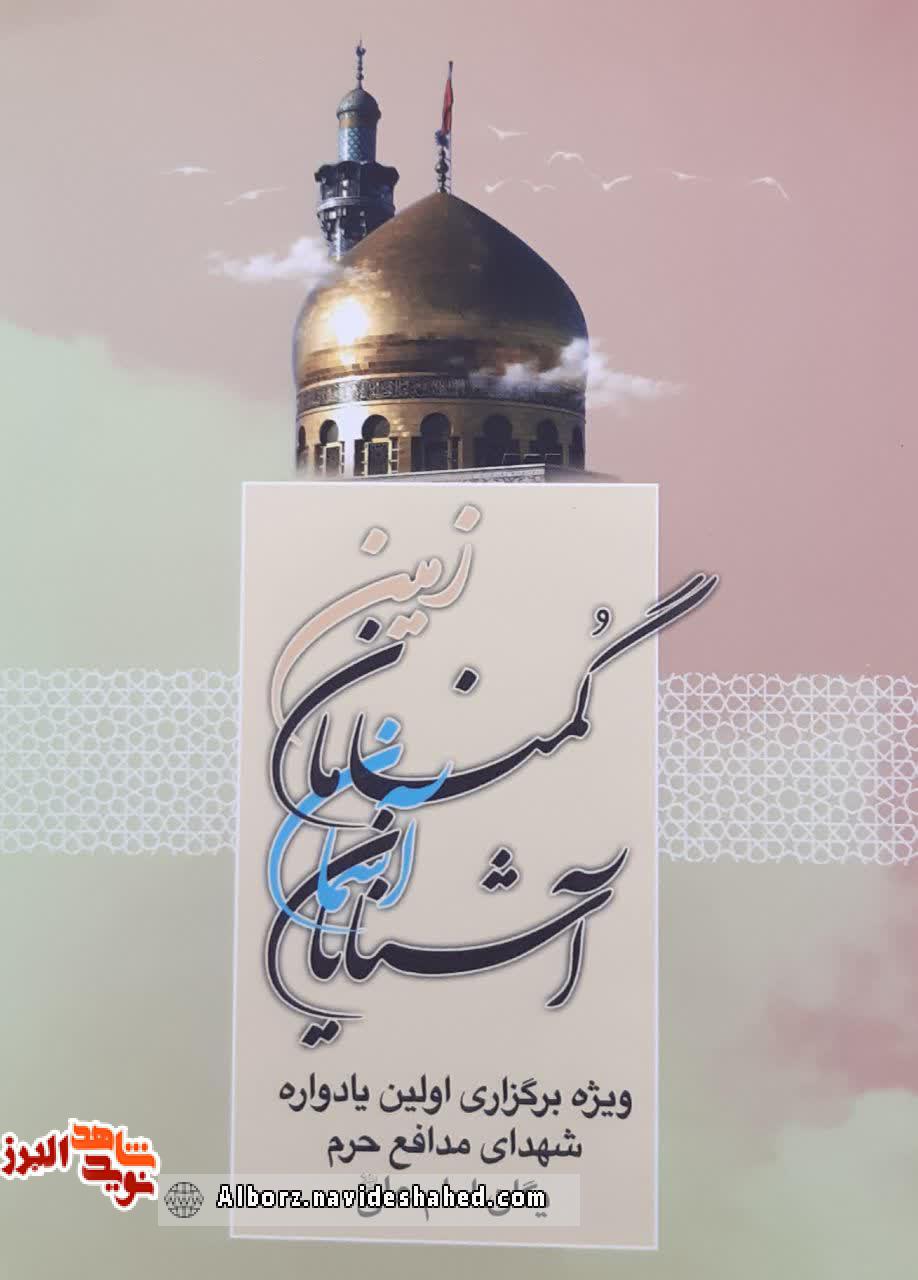 گمنامان
زمین
آشنایان
آسمان
ویژه برگزاری اولین یادواره
شهدای مدافع حرم
یگان امام علی
نوید شاهد البرز
Alborz.navideshahed.com